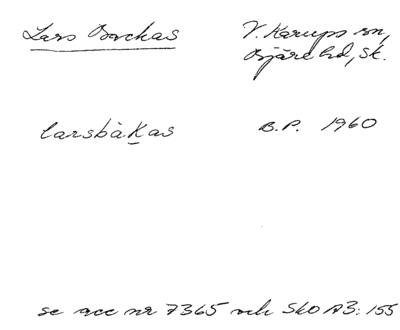 Lars Backas
V. Karups sn,
Bjäre hd, Sk.
larsbàkas
B.P. 1960
se acc nr 7365 och Sko A3: 155